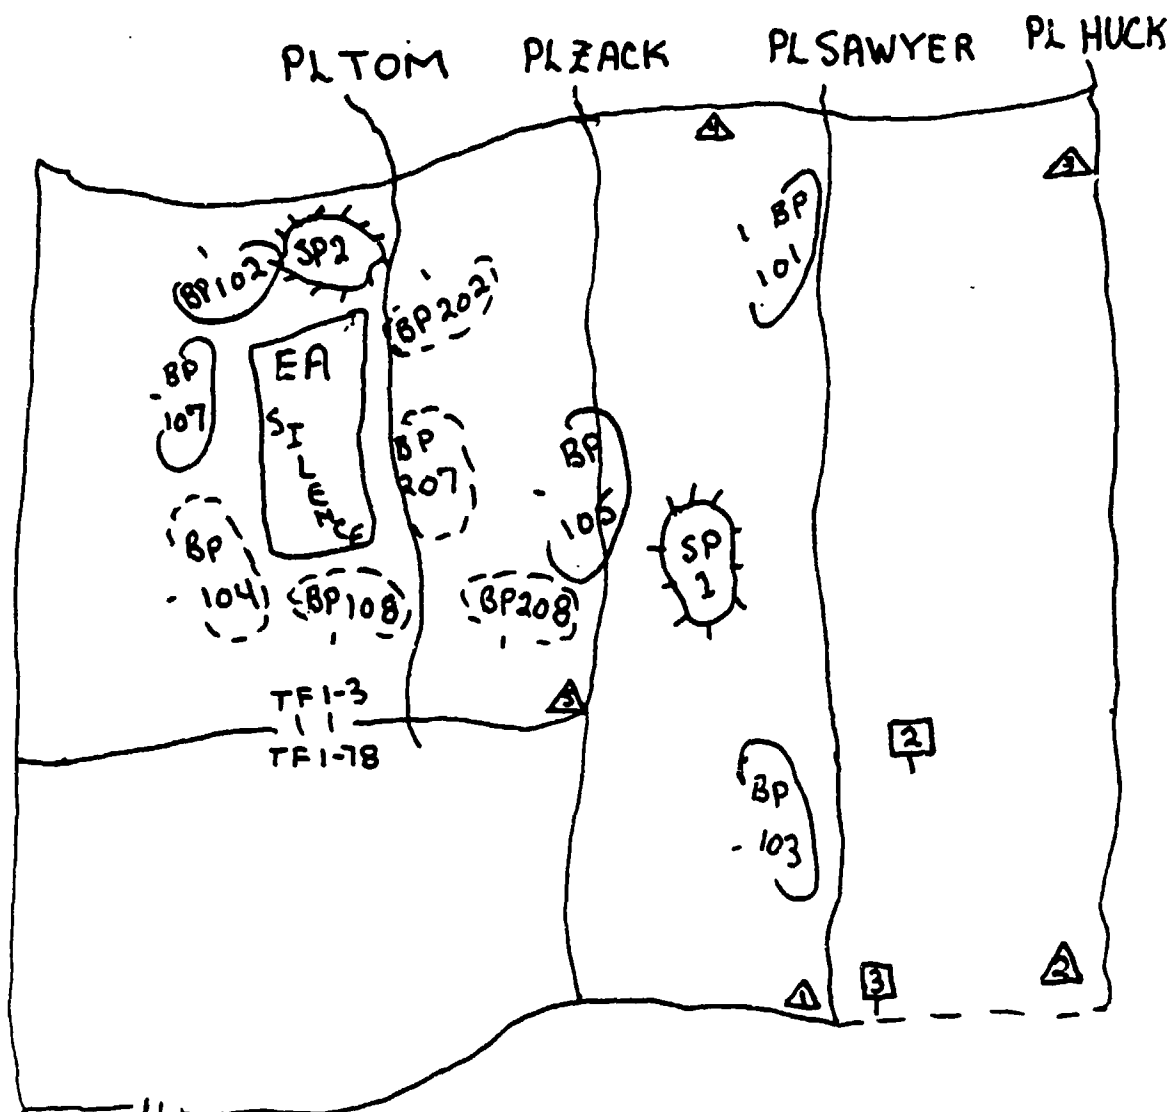 PL TOM
PL ZACK
PL SAWYER
PL HUCK
4
3
BP
101
SP2
BP102
BP202
EA
SILENCE
BP
107
BP
207
BP
SP
1
BP
104
BP108
BP208
5
TF1-3
TF1-78
2
BP
103
3
1
2